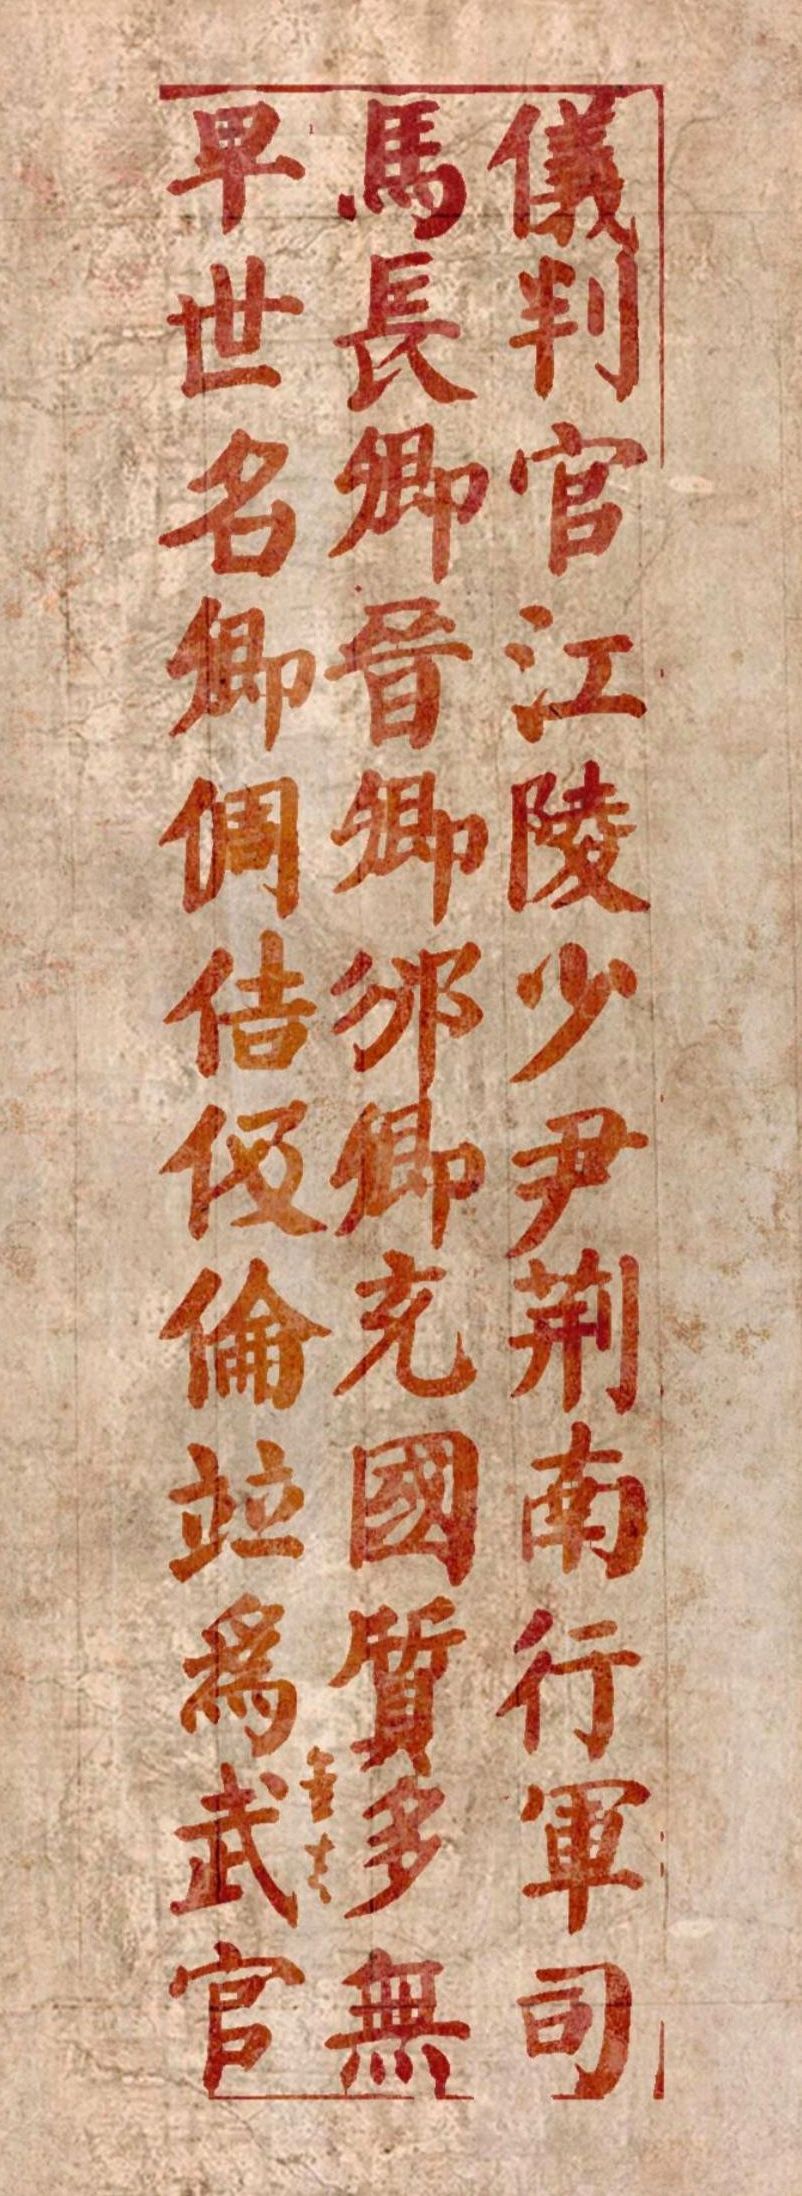 儀判官江陵少尹荆南行軍司
馬長卿晉卿邠卿充國質多無
早世名卿倜佶伋倫竝爲武官